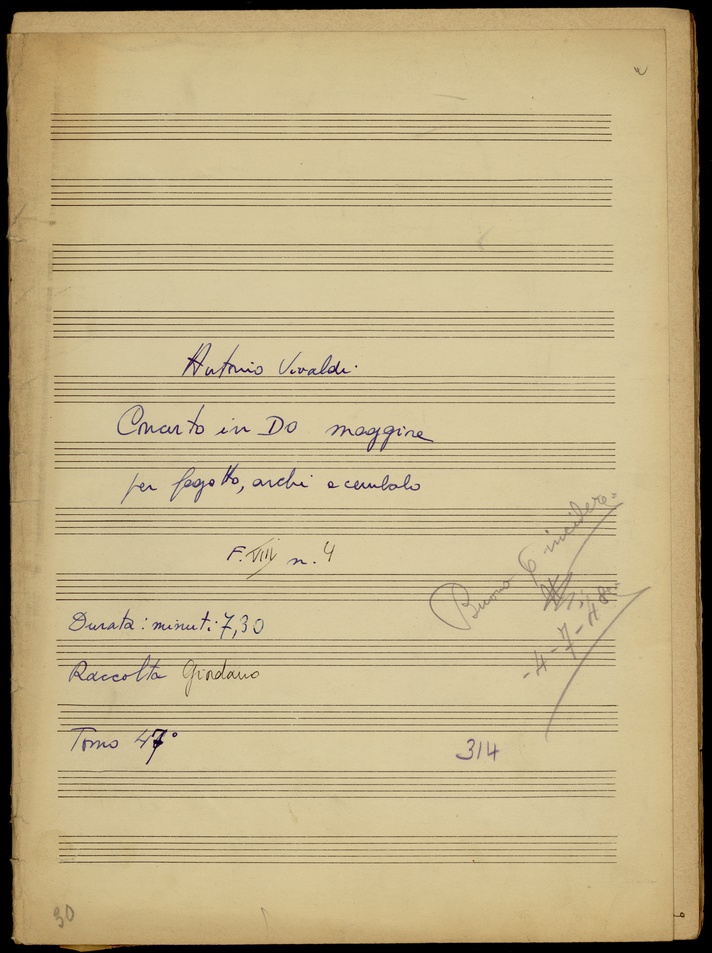 Antonio Vivaldi
Concerto in Do maggiore
per fagotto, archi e cembalo
F. VIII n. 4
Buono p incidere
-4-7-48
Durata: minuti 7,30
Raccolta Giordano
Tomo 47°
314
30